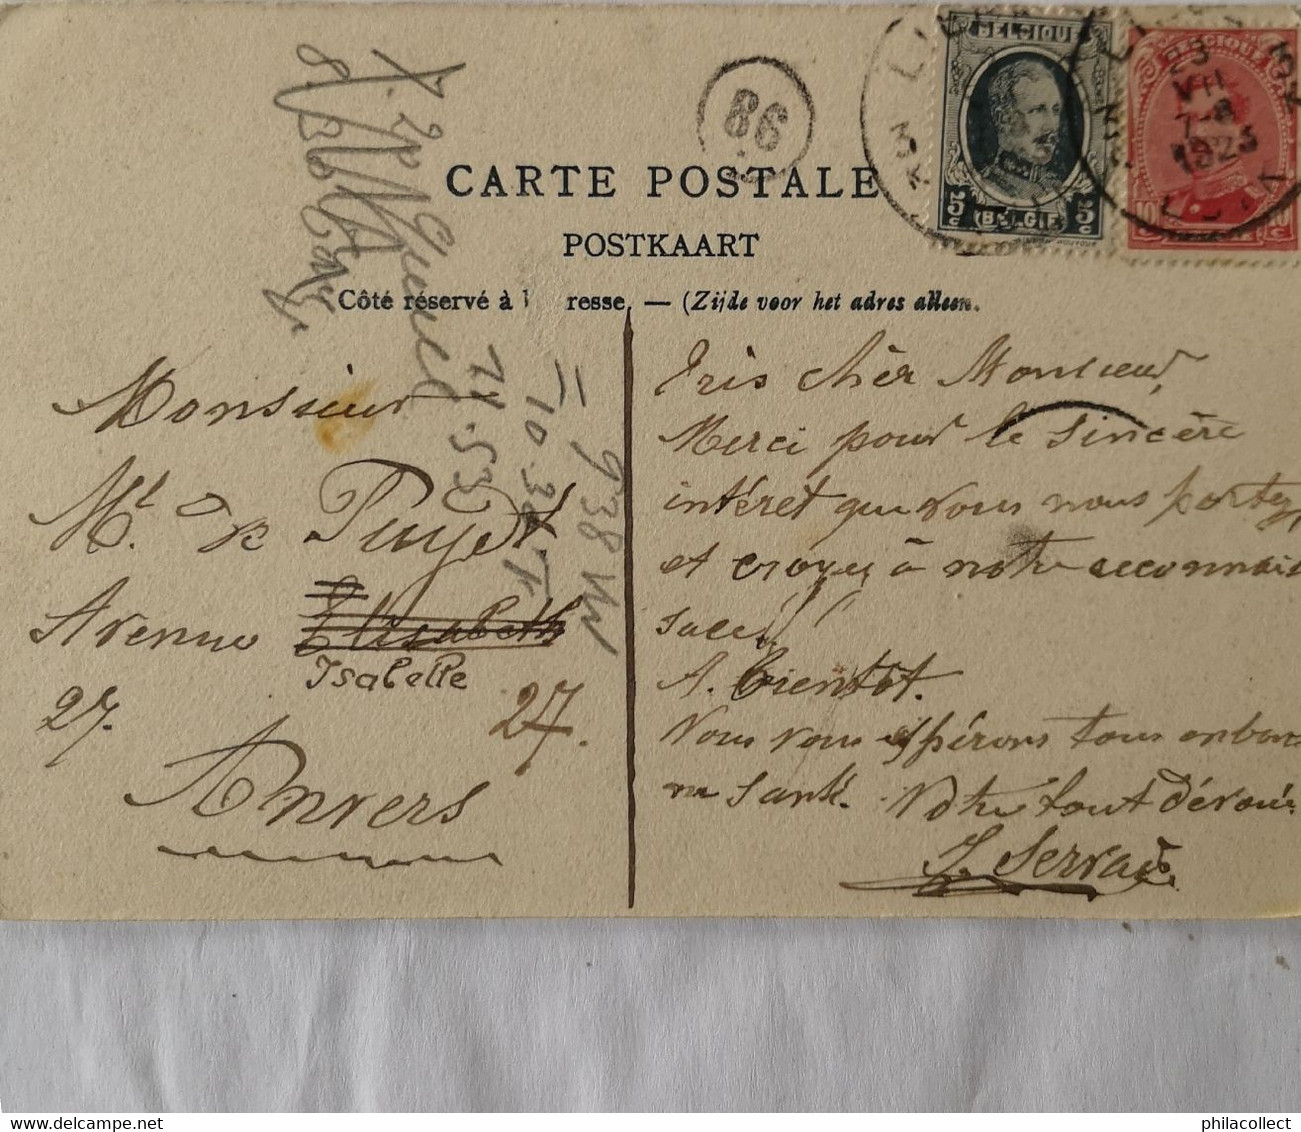 BELGIQUE
5c 5c
BELGIË
BELGIQUE
23
VII
7-8
1923
86
CARTE POSTALE
POSTKAART
Côté réservé à l resse. — (Zijde voor het adres alleen.
Monsieur
Mr de Puydt
Avenue Elisabeth
Isabelle
27. 27.
Anvers
71.53
10 38
938
Très chèr Monsieur,
Merci pour le sincère
intéret que vous nous portez,
et croyez à notre reconnais
sance!
A. bientôt.
Nous vous espérons tous en bon
ne santé. Votre tout dévoué
J. Servais
philacollect